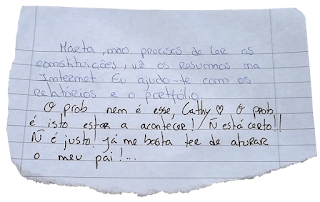 Marta, não precisas de ler as
constituições, vê os resumos na
Internet. Eu ajudo-te com os
relatórios e o portfólio
O prob nem é esse, Cathy ♡ O prob
é isto estar a acontecer! Ñ está certo!!
Ñ é justo! Já me basta ter de aturar
o meu pai!...